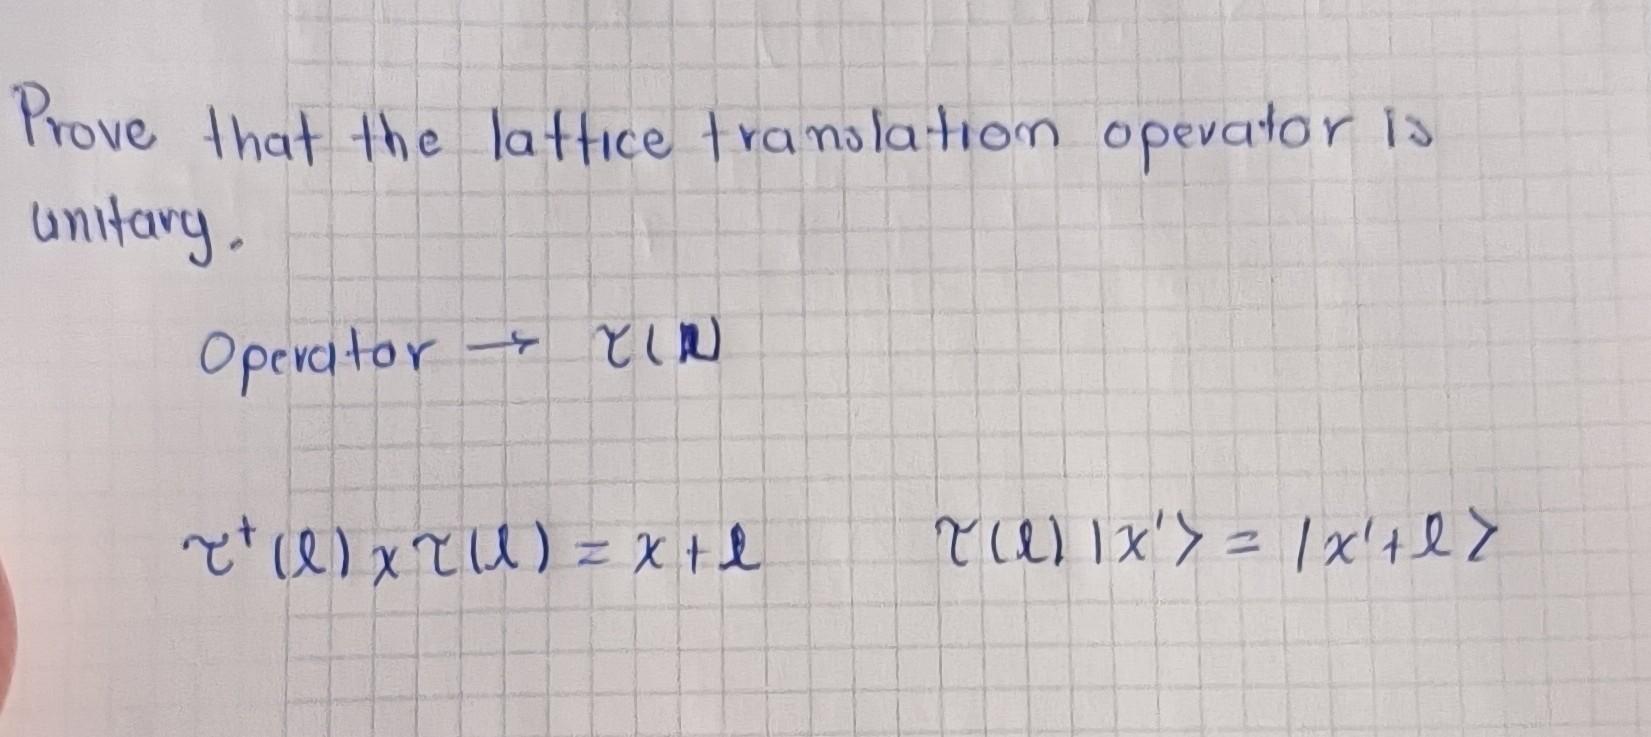 Prove that the lattice translation operator is
unitary.
Operator → τ(l)
τ†(l) x τ(l) = x + l τ(l) |x'> = |x' + l>